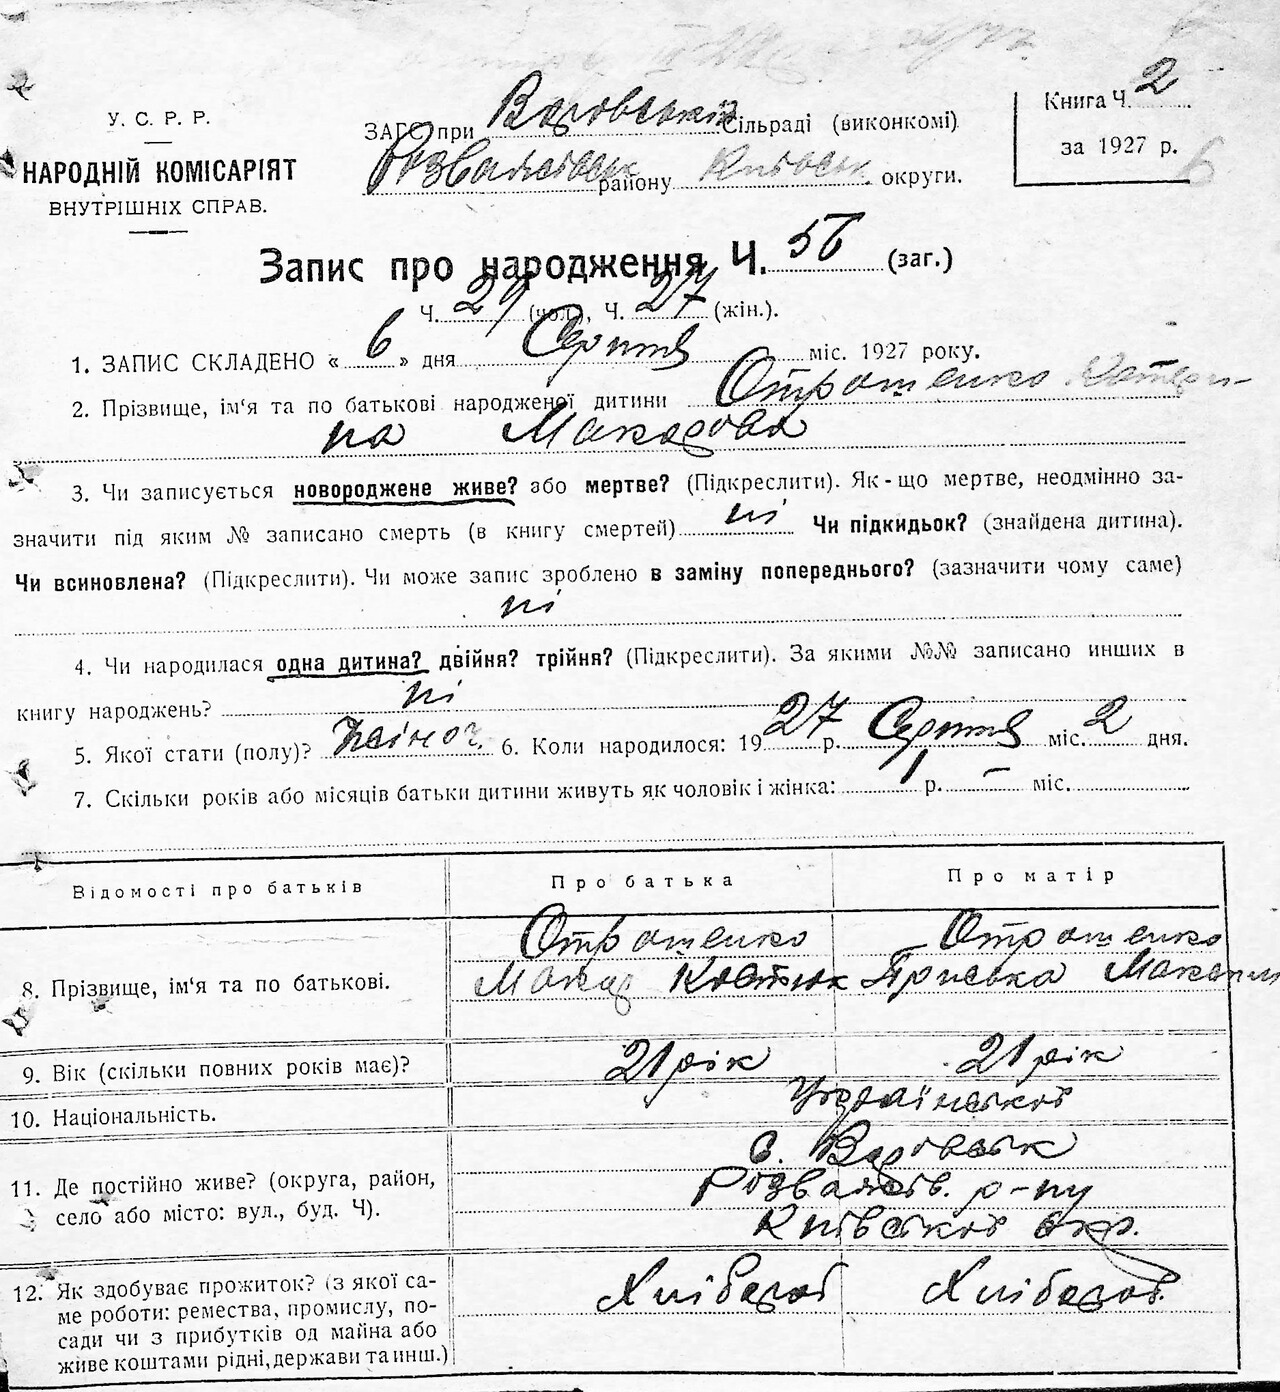 У. С. Р. Р.
НАРОДНІЙ КОМІСАРІЯТ
ВНУТРІШНІХ СПРАВ.
ЗАГС при Варовській Сільраді (виконкомі)
Розважівськ району Київськ. округи.
Книга Ч. 2
за 1927 р. 6
Запис про народження Ч. 56 (заг.)
Ч. 29 (чол.), Ч. 27 (жін.).
1. ЗАПИС СКЛАДЕНО « 6 » дня Серпня міс. 1927 року.
2. Прізвище, ім‘я та по батькові народженої дитини Отрошенко Катери-
на Макарова
3. Чи записується новороджене живе? або мертве? (Підкреслити). Як-що мертве, неодмінно за-
значити під яким № записано смерть (в книгу смертей) ні Чи підкидьок? (знайдена дитина).
Чи всиновлена? (Підкреслити). Чи може запис зроблено в заміну попереднього? (зазначити чому саме)
ні
4. Чи народилася одна дитина? двійня? трійня? (Підкреслити). За якими №№ записано инших в
книгу народжень? ні
5. Якої стати (полу)? жіноч. 6. Коли народилося: 1927 р. Серпня міс. 2 дня.
7. Скільки років або місяців батьки дитини живуть як чоловік і жінка: 1 р. – міс.
Відомості про батьків Про батька Про матір
8. Прізвище, ім‘я та по батькові. Отрошенко Макар Костюк Отрошенко Пріська
9. Вік (скільки повних років має)? 21 рік 21 рік
10. Національність. Української
11. Де постійно живе? (округа, район, с. Варовськ
село або місто: вул., буд. Ч). Розважів. р-ну
Київської окр.
12. Як здобуває прожиток? (з якої са- Хлібороб Хлібороб
ме роботи: ремества, промислу, по-
сади чи з прибутків од майна або
живе коштами рідні, держави та инш.)